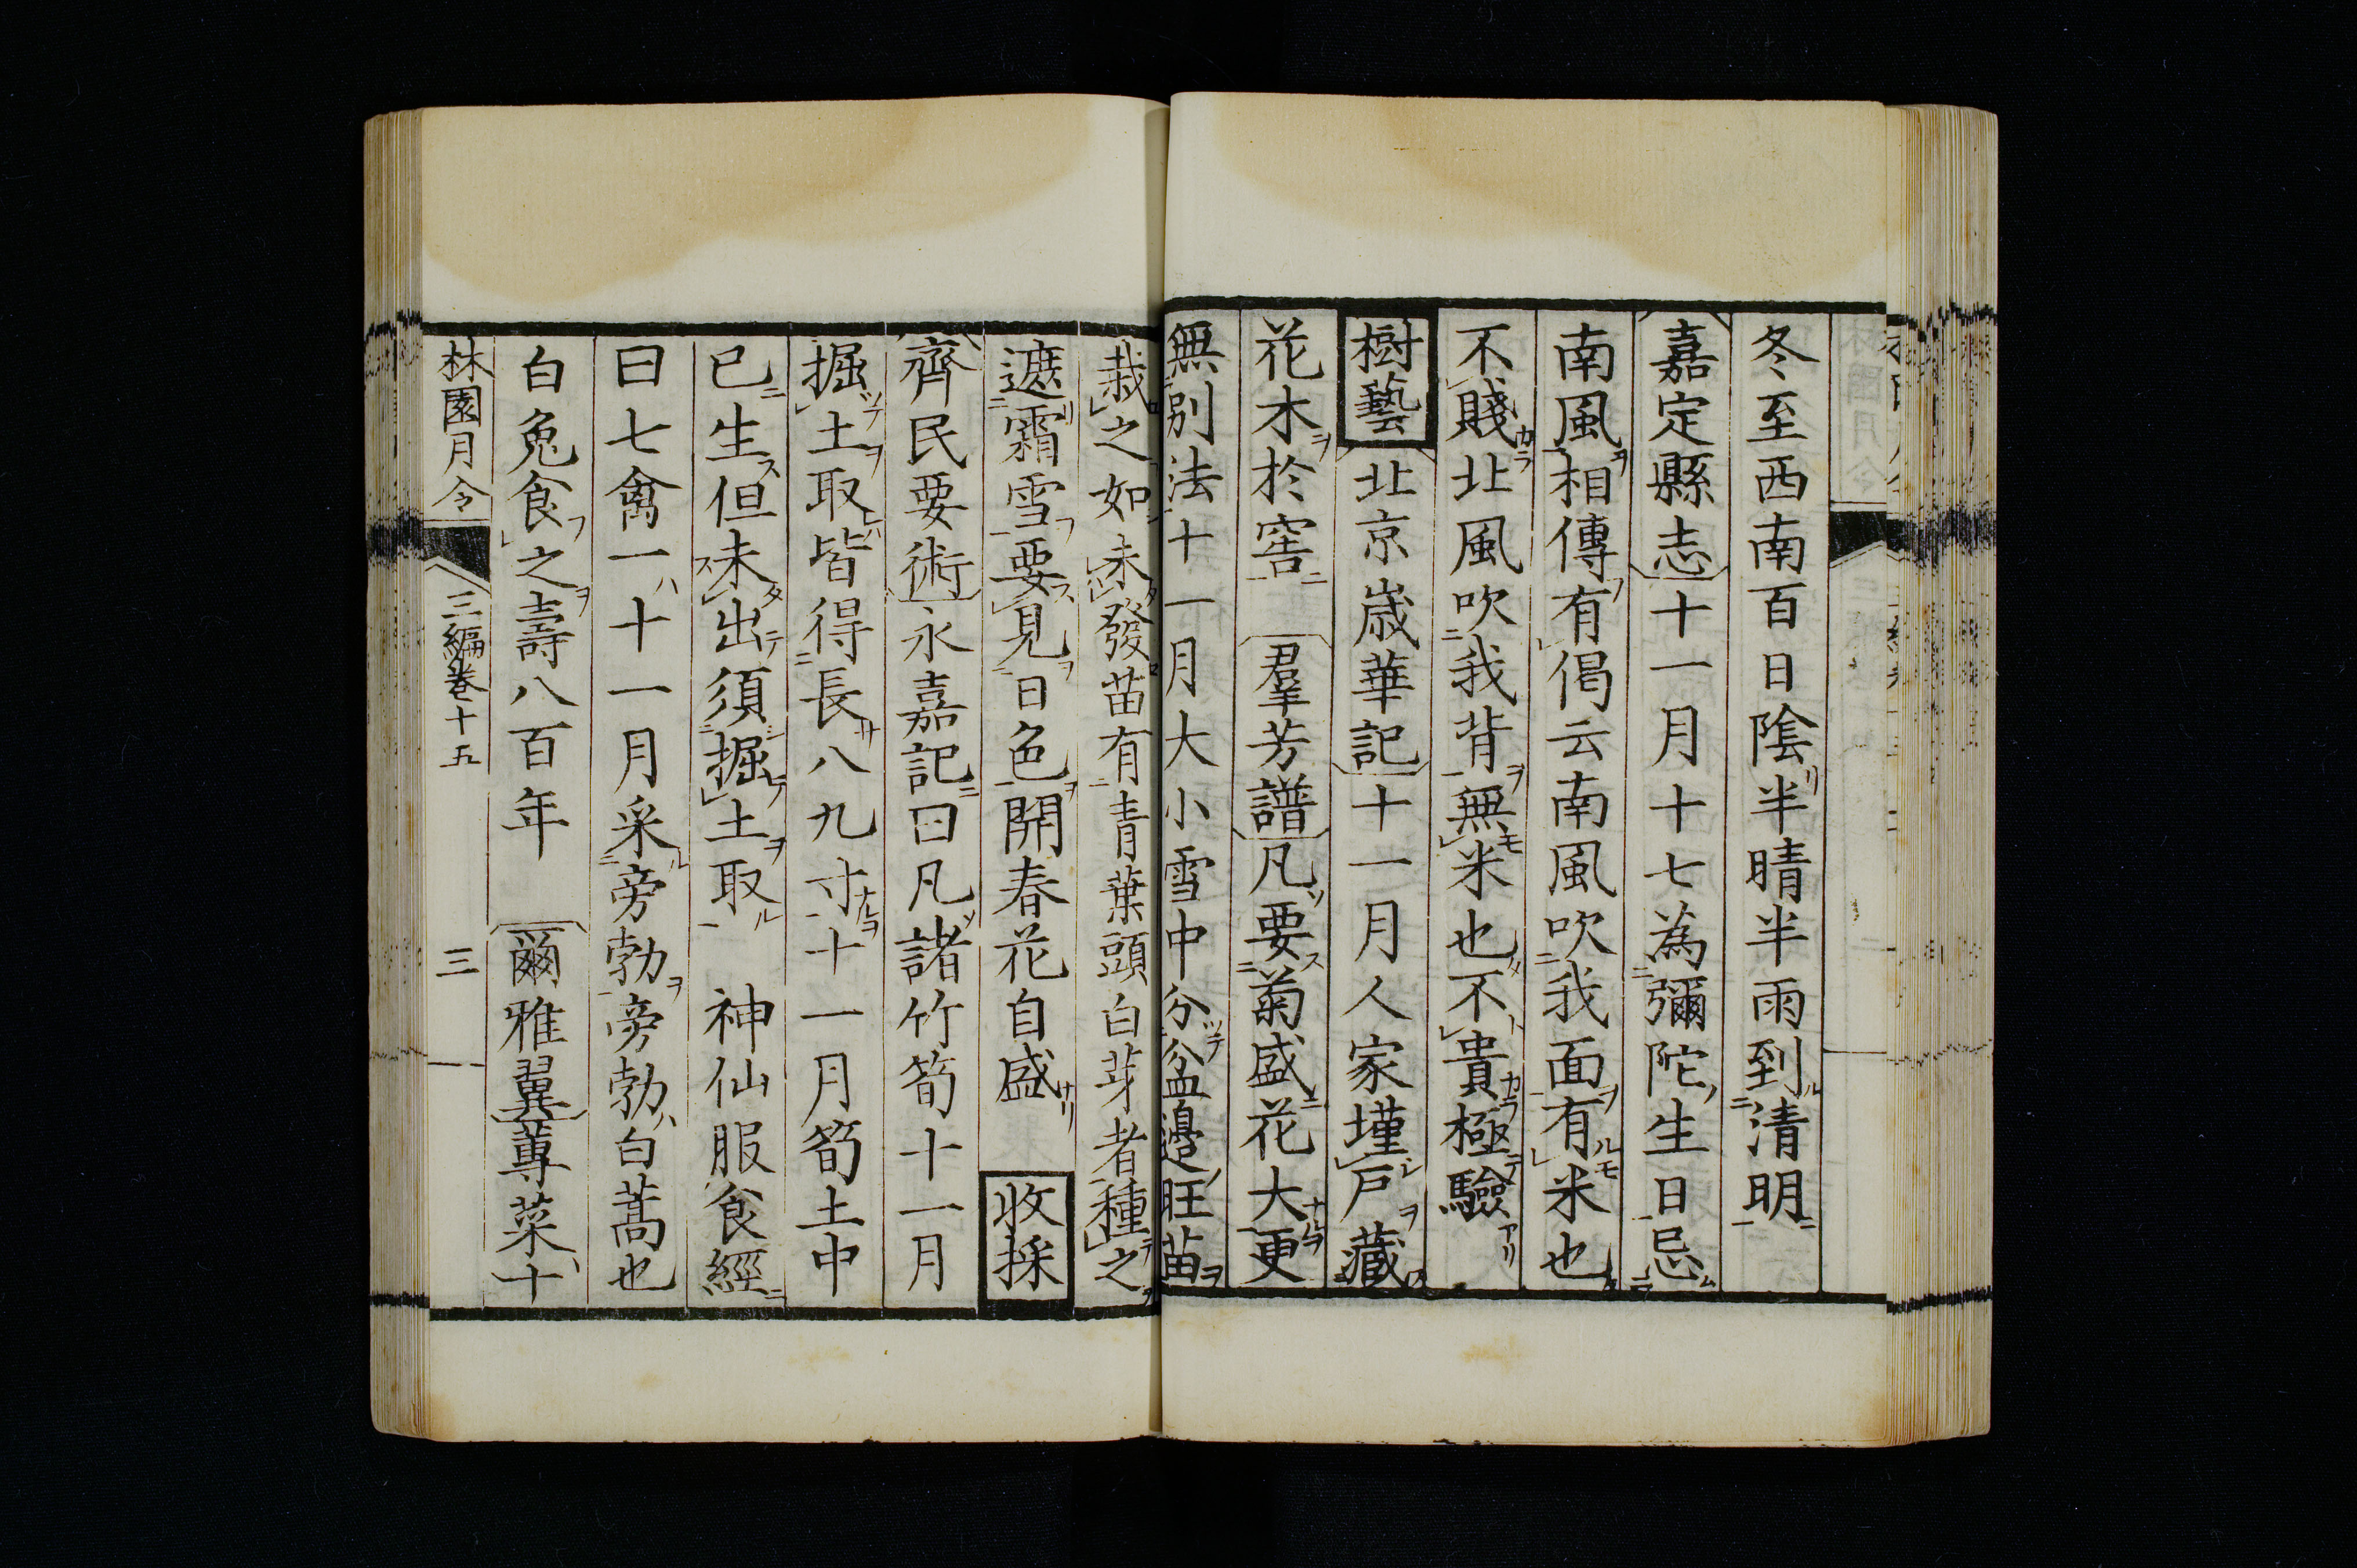 冬至西南百日陰半晴半雨到清明
嘉定縣志十一月十七為彌陀生日忌
南風相傳有偈云南風吹我面有米也
不賤北風吹我背無米也不貴極驗
樹藝北京歲華記十一月人家墐戸藏
花木於窖 羣芳譜凡要菊盛花大更
無別法十一月大小雪中分盆邊旺苗
栽之如未發苗有青葉頭白芽者種之
遮霜雪要見日色開春花自盛 收採
齊民要術永嘉記曰凡諸竹筍十一月
掘土取皆得長八九寸十一月筍土中
已生但未出須掘土取 神仙服食經
曰七禽一十一月采旁勃旁勃白蒿也
白兔食之壽八百年 爾雅翼蓴菜十
林園月令 三編卷十五 三